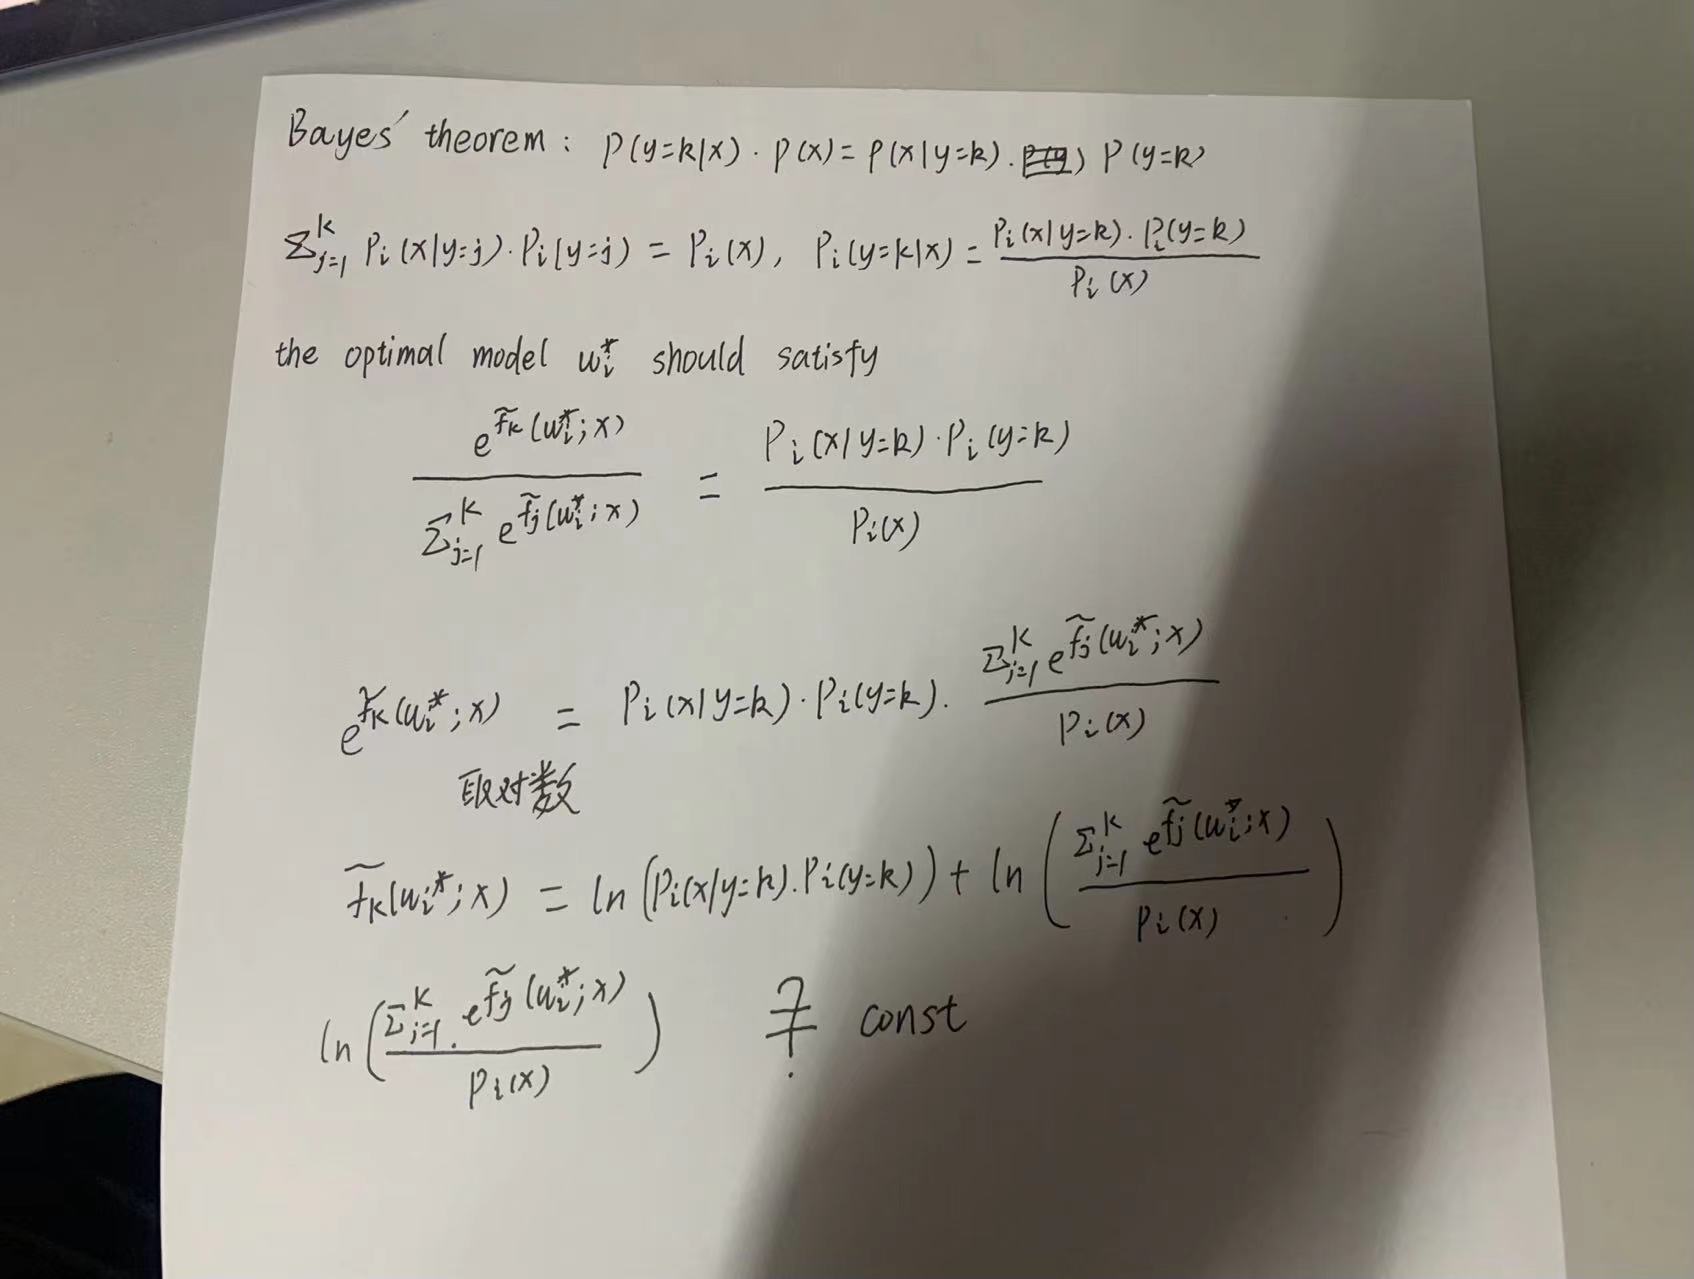 Bayes' theorem: P(y=k|x) · P(x) = P(x|y=k) · P(y=k)
Σ_{j=1}^K P_i(x|y=j) · P_i(y=j) = P_i(x), P_i(y=k|x) = \frac{P_i(x|y=k) · P_i(y=k)}{P_i(x)}
the optimal model w_i^* should satisfy
\frac{e^{\tilde{f}_k(w_i^*; x)}}{Σ_{j=1}^K e^{\tilde{f}_j(w_i^*; x)}} = \frac{P_i(x|y=k) · P_i(y=k)}{P_i(x)}
e^{\tilde{f}_k(w_i^*; x)} = P_i(x|y=k) · P_i(y=k) · \frac{Σ_{j=1}^K e^{\tilde{f}_j(w_i^*; x)}}{P_i(x)}
取对数
\tilde{f}_k(w_i^*; x) = ln(P_i(x|y=k) · P_i(y=k)) + ln(\frac{Σ_{j=1}^K e^{\tilde{f}_j(w_i^*; x)}}{P_i(x)})
ln(\frac{Σ_{j=1}^K e^{\tilde{f}_j(w_i^*; x)}}{P_i(x)}) =? const